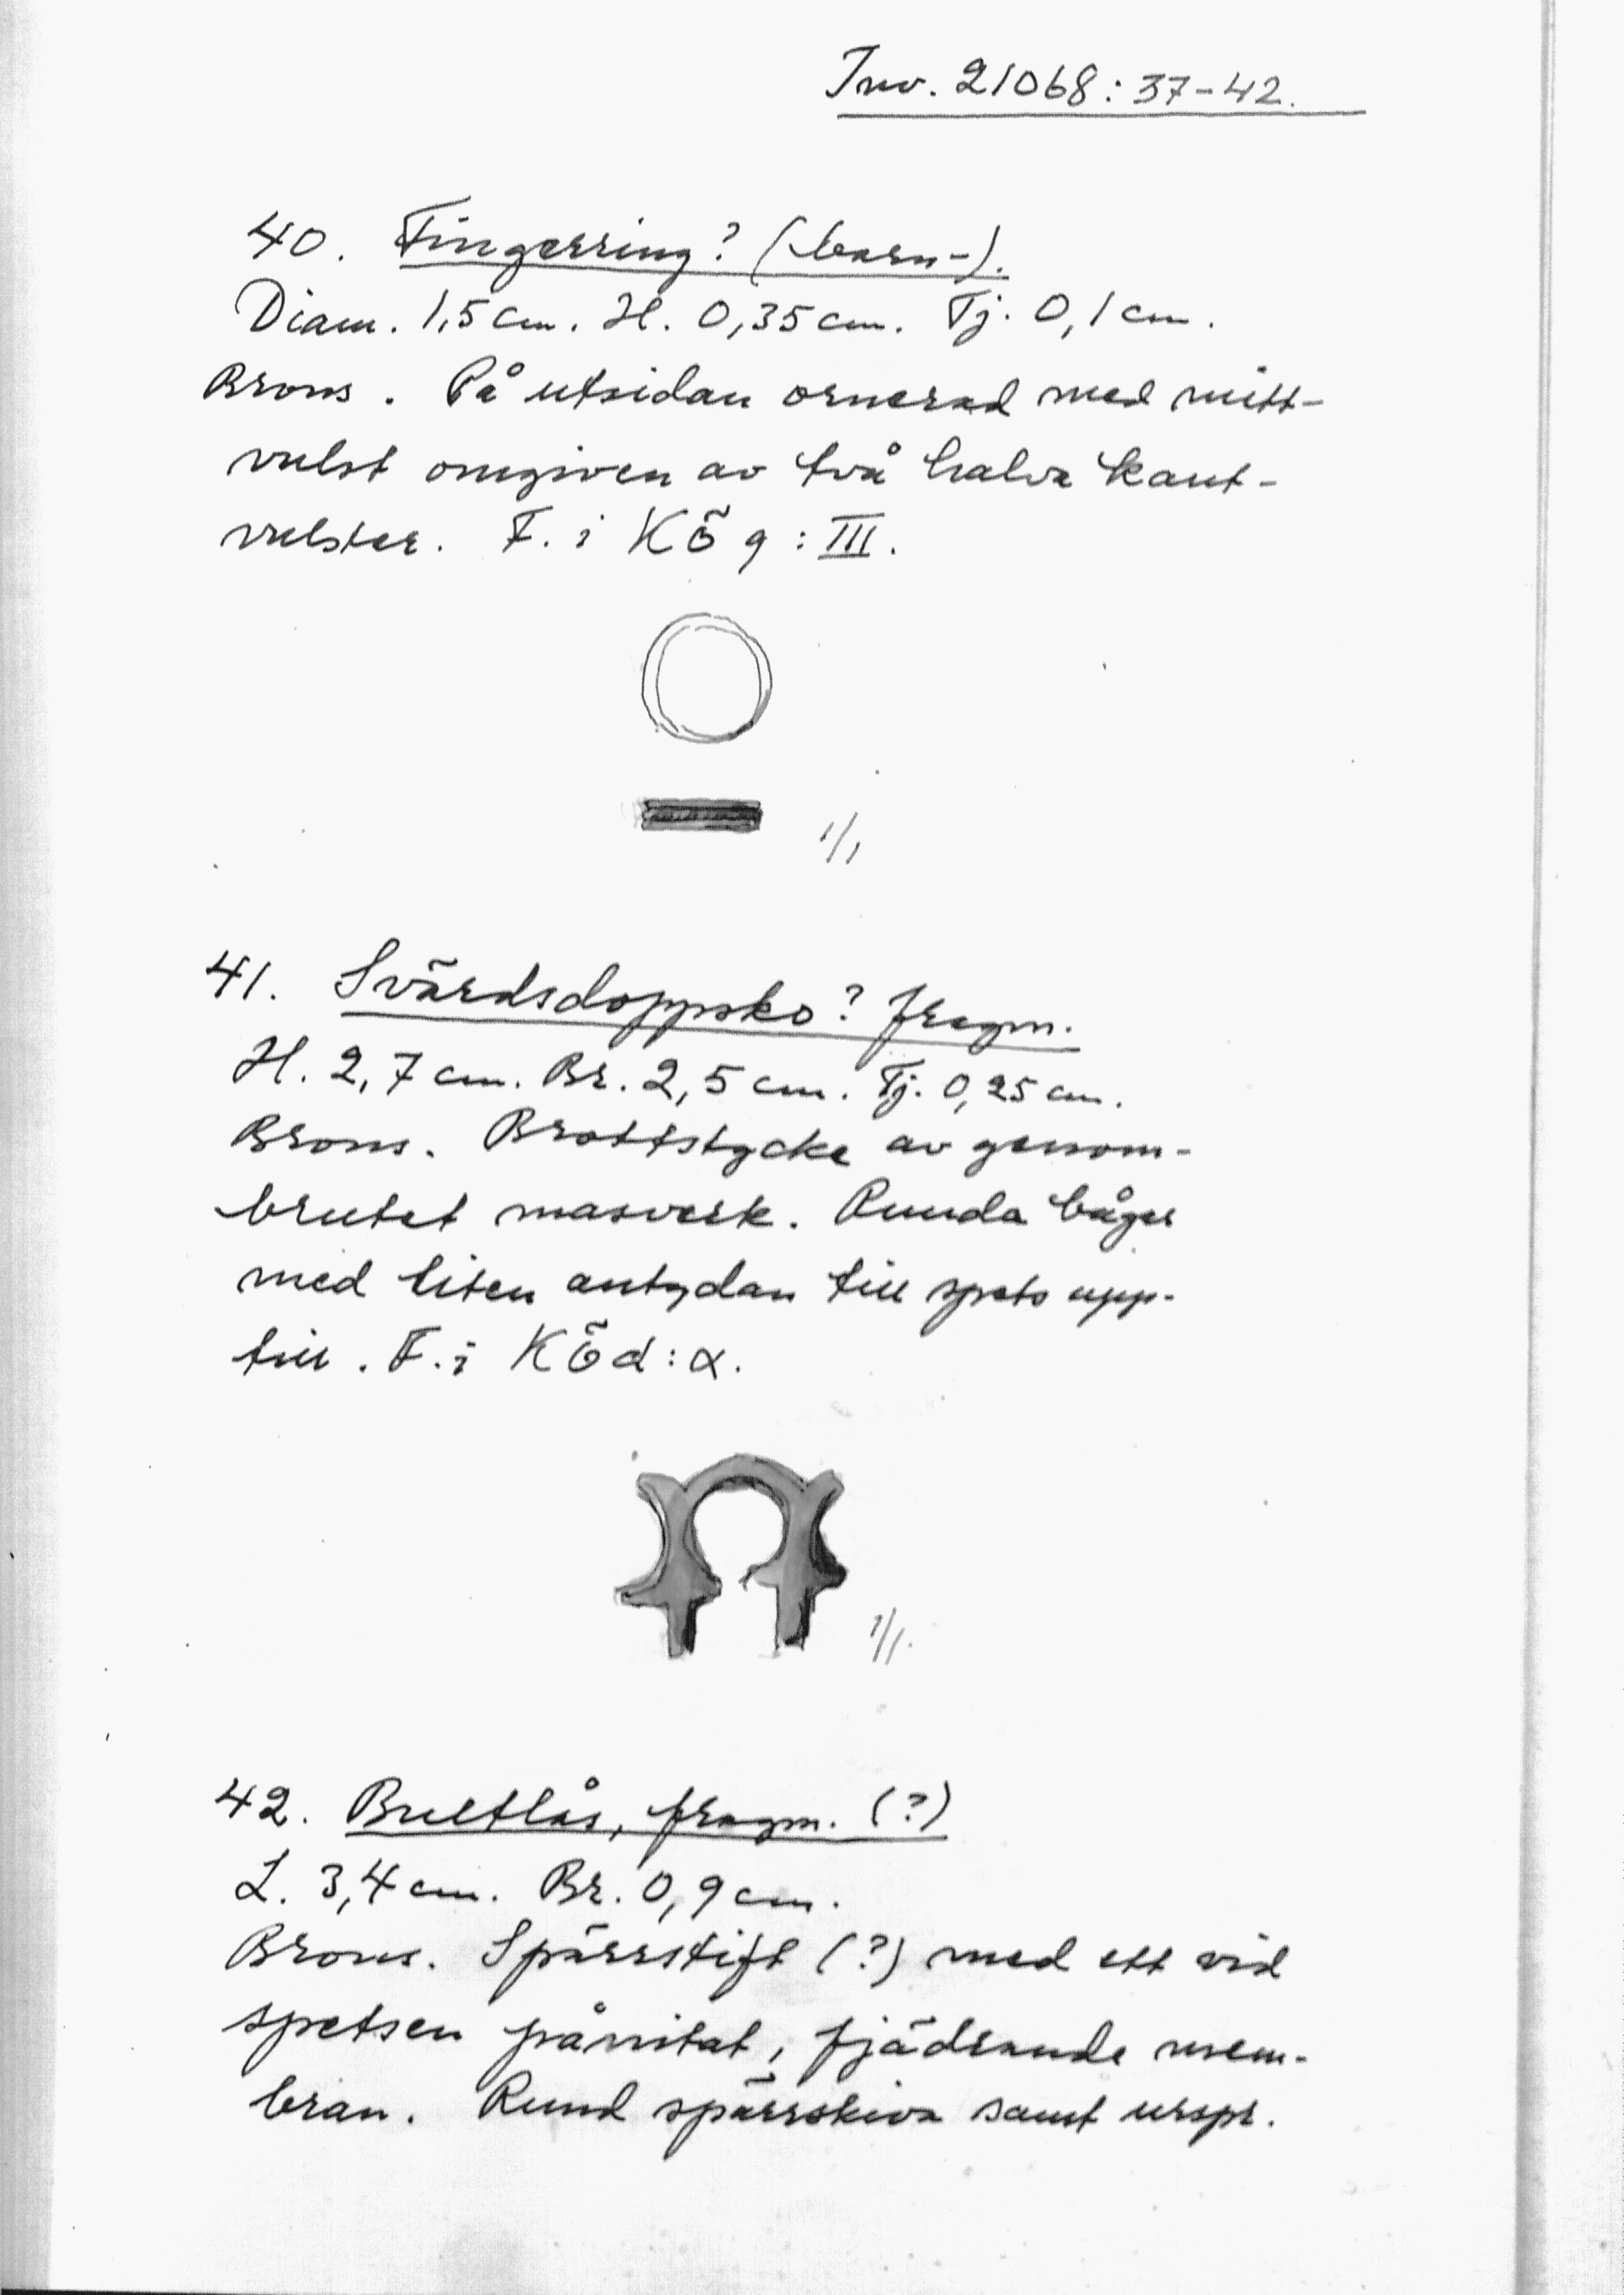 Inv. 21068:37-42.
40. Fingerring? (barn-).
Diam. 1,5 cm. H. 0,35 cm. Tj. 0,1 cm.
Brons. På utsidan ornerad med mitt-
vulst omgiven av två halva kant-
vulster. F. i KÖ g:III.
1/1
41. Svärdsdoppsko? fragm.
H. 2,7 cm. Br. 2,5 cm. Tj. 0,25 cm.
Brons. Brottstycke av genom-
brutet masverk. Runda bågar
med liten antydan till spets upp-
till. F. i KÖ d:α.
1/1.
42. Bultlås, fragm. (?)
L. 3,4 cm. Br. 0,9 cm.
Brons. Spärrstift (?) med ett vid
spetsen pånitat, fjädrande mem-
bran. Rund spärrskiva samt urspr.